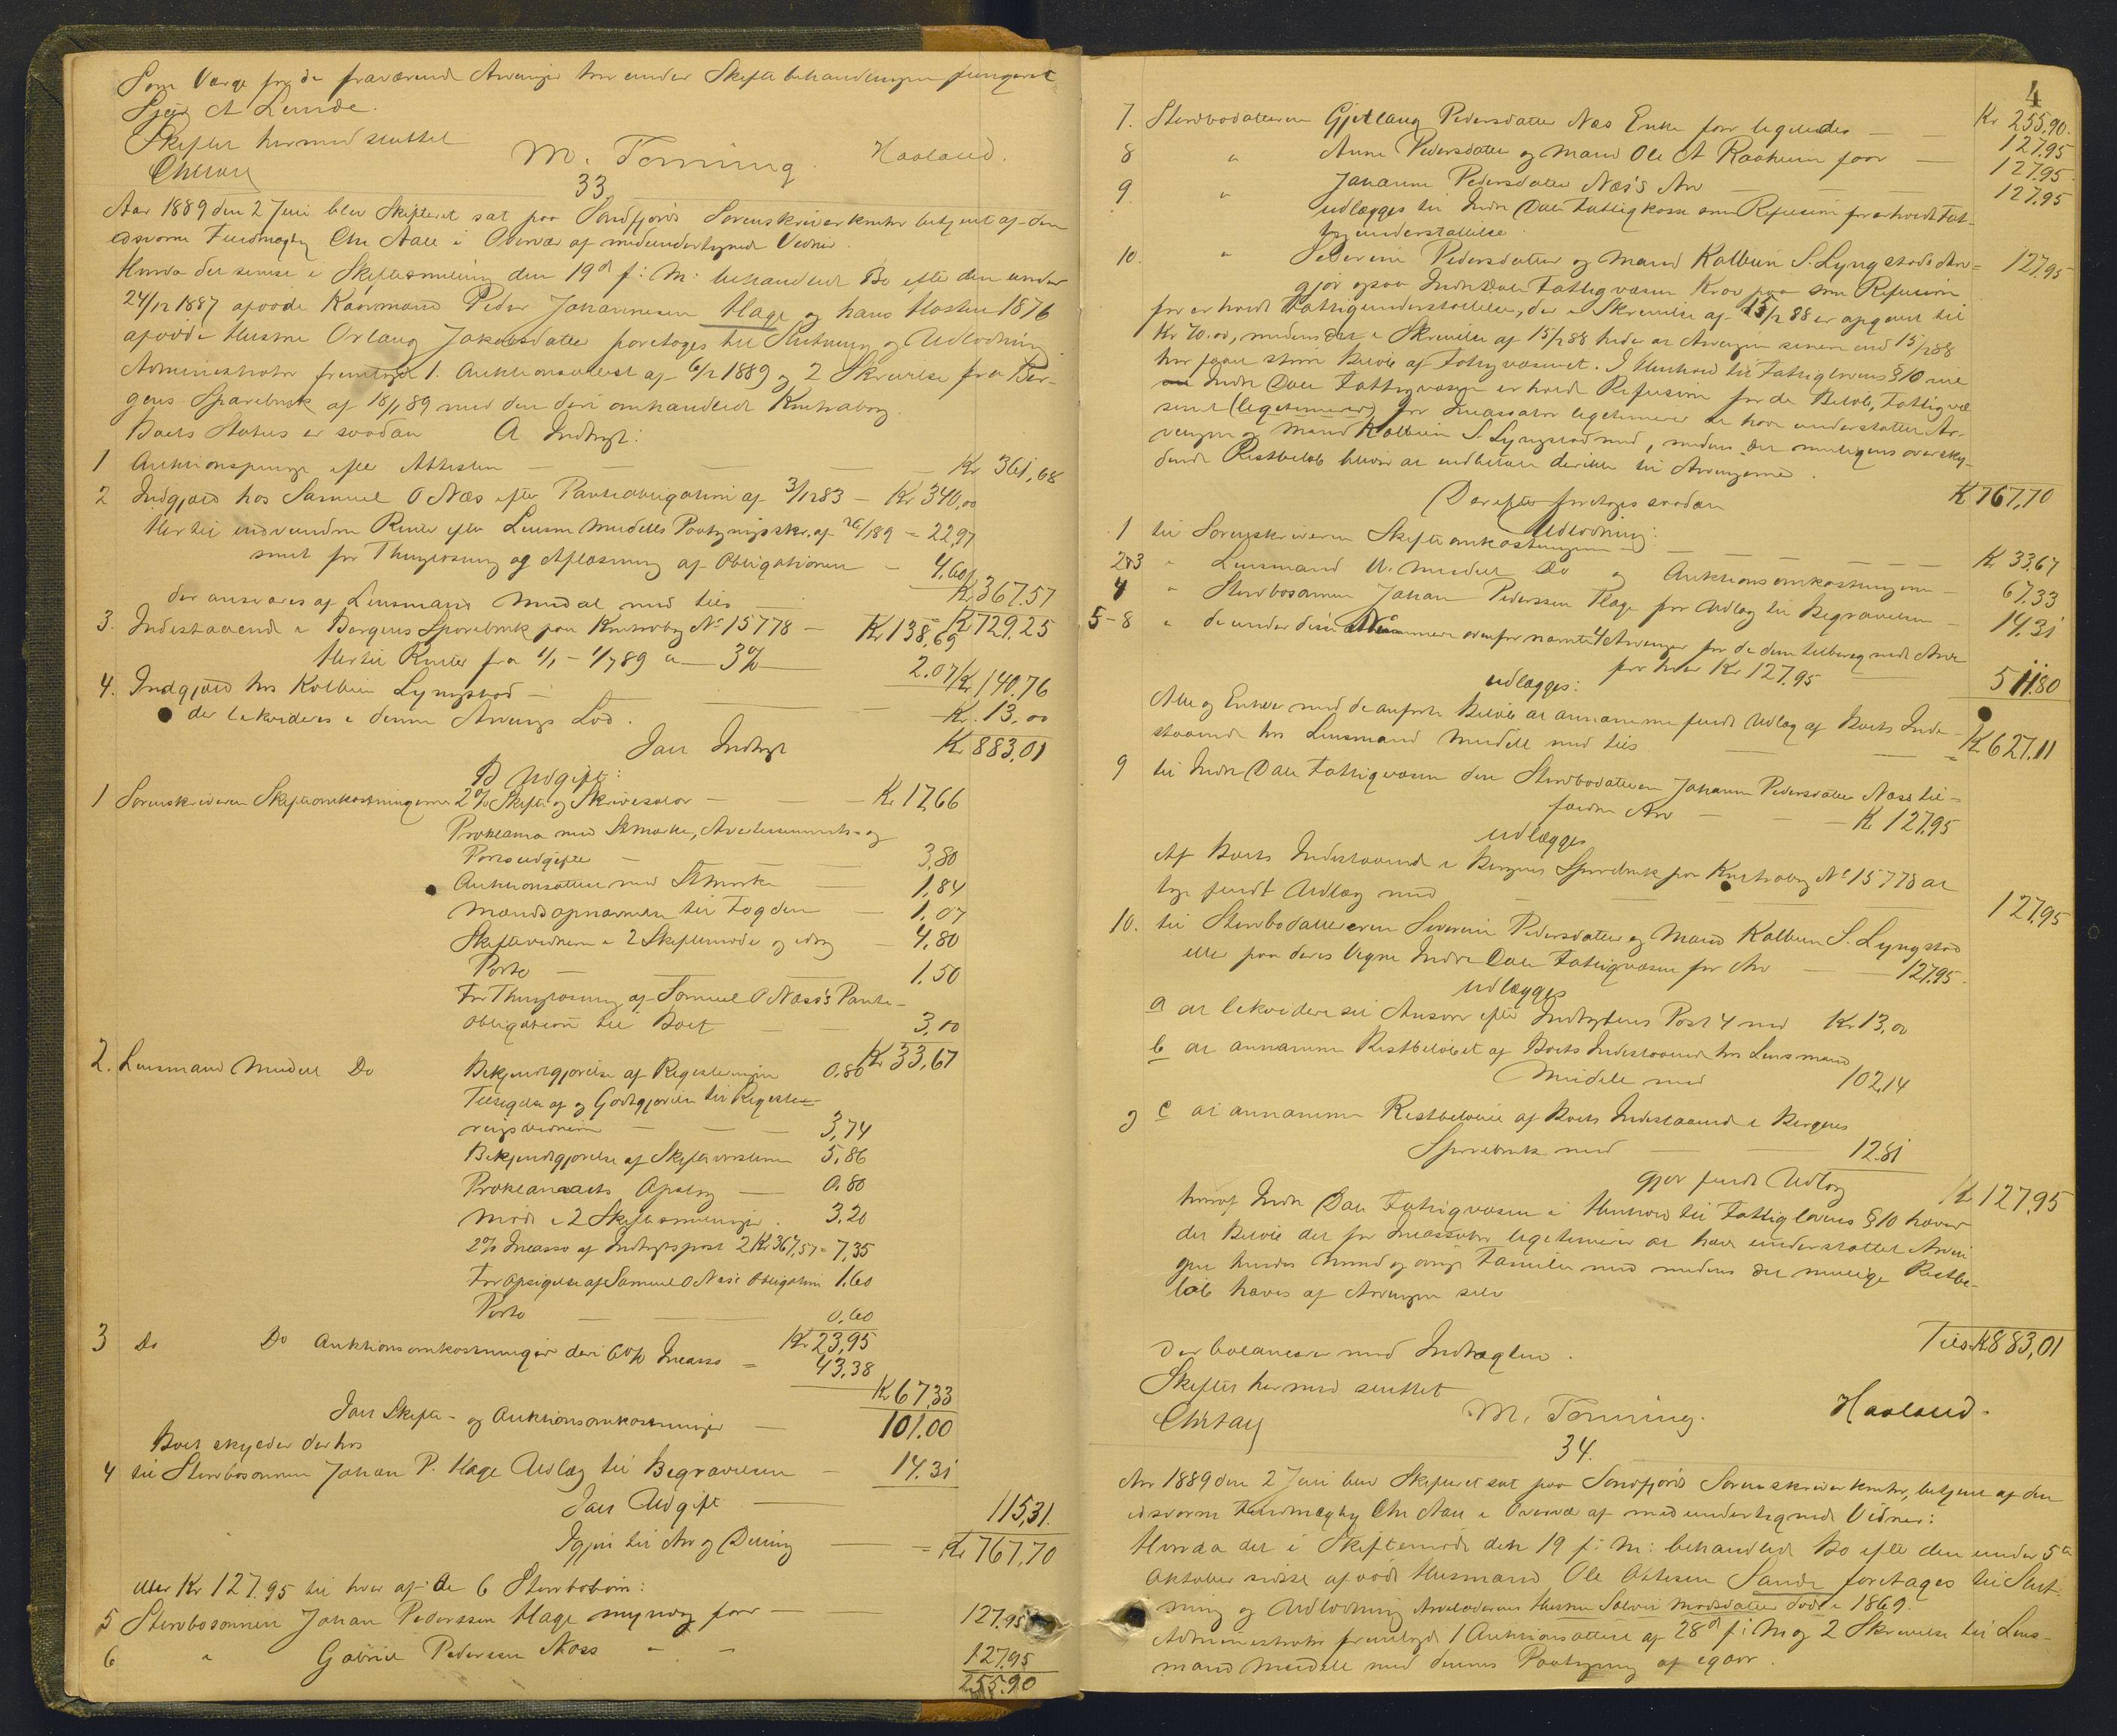 Som Værge for de fraværende Arvinger har under Skiftebehandlingen fungeret
A Lunde.
Skiftet hermed sluttet
M. Tonning. Haaland.
33
Aar 1889 den 2 Juni blev Skifteret sat paa Søndfjords Sorenskriverkontor betjent af den
edsvorne Fuldmægtig Chr Aall i Overvær af medundertegnede Vidner.
Hvorda det senest i Skiftesamling den 19d f: M: behandlede Bo efter den under
24/12 1887 afdøde Kaarmand Peder Johannesen Hage og hans Høsten 1876
afdøde Hustru Orlaug Jakobsdatter foretoges til Slutning og Udlodning.
Administrator fremlagde 1. Auktionsattest af 6/2 1889 og 2 Skrivelse fra Ber-
gens Sparebank af 18/1 89 med den deri omhandlede Kontrabog.
Boets Status er saadan A Indtægt:
1 Auktionspenge efter Attesten — Kr 361,68
2 Indgjæld hos Samuel O Næs efter Panteobligation af 3/12 83 — Kr 340,00
Hertil indvundne Renter efter Lensm Meidells Paategningsskr. af 26/1 89 = 22,97
samt for Thinglæsning og Aflæsning af Obligationen - 4,60
Kr 367.57
der ansvares af Lensmand Meidell med tils — Kr 729.25
3. Indestaaende i Bergens Sparebank paa Kontrabog No 15778 — Kr 138,69
Hertil Renter fra 1/1 - 1/7 89 a 3% 2.07 Kr 140.76
4. Indgjæld hos Kolbein Lyngstad —
der likvideres i denne Arvings Lod. Kr. 13,00
Ialt Indtægt Kr 883,01
B Udgift:
1 Sorenskriveren Skifteomkostningerne 2% Skifte og Skriversalær — Kr 17,66
Proklama med Stmærke, Avertissements- og
Portoudgifter — 3,80
Auktionsattest med Stmærke 1,84
Mandsopnævnelse til Fogden — 1,07
Skiftevidnerne i 2 Skiftemøder og udlæg — 4,80
Porto — 1.50
For Thinglæsning af Samuel O Næss's Pante-
obligation til Boet — 3,00
Kr 33,67
2. Lensmand Meidell Do Bekjendtgjørelse af Registreringen 0.80
Tilsigelse af og Godtgjørelse til Registre-
ringsvidnerne — 3,74
Bekjendtgjørelse af Skiftesamlinger 5,86
Proklamaets Opslag — 0.80
Møde i 2 Skiftesamlinger. 3.20
2% Incasso af Indtægtspost 2 Kr 367,57 = 7,35
For Opsigelse af Samuel O Næss Obligation 1,60
Porto — 0,60
Kr 23,95
3 Do Do Auktionsomkostninger deri 6% Incasso = 43,38
Kr 67,33
Ialt Skifte- og Auktionsomkostninger — 101.00
Boet skylder derhos
4 til Sterbosønnen Johan P. Hage Udlæg til Begravelsen — 14.31
Ialt Udgift — 115,31.
Igjen til Arv og Deling — = Kr 767,70
eller Kr 127.95 til hver af de 6 Sterbobørn:
5 Sterbosønnen Johan Pederssen Hage myndig faar — 127.95
6 " Gabriel Pedersen Næss - - 127.95
255.90
4
7. Sterbodatteren Gjertlaug Pedersdatter Næs Enke faar ligeledes — Kr 255,90.
127.95
8 " Anne Pedersdatter og Mand Ole A Raaheim faar — 127.95
9 " Johanne Pedersdatter Næs's Arv 127.95
udlægges til Indre Dale Fattigkasse som Refusion for erholdt Fat-
tigunderstøttelse.
10. " Severine Pedersdatter og Mand Kolbein S. Lyngstads Arv = 127,95
gjør ogsaa Indre Dale Fattigvæsen Krav paa som Refusion
for erholdt Fattigunderstøttelse, der i Skrivelse af 15/2 88 er opgivet til
Kr 70.00, medens det i Skrivelse af 15/2 88 heder at Arvingen senere end 15/2 88
har faaet større Beløb af Fattigvæsenet. I Henhold til Fattiglovens § 10 vil
Indre Dale Fattigvæsen erholde Refusion for de Beløb, Fattigvæ
senet (legetimerer) for Incassator legetimerer at have understøttet Ar-
vingen og Mand Kolbein S. Lyngstad med, medens det muligens oversky-
dende Restbeløb bliver at udbetale direkte til Arvingerne.
Kr 767,70
Derefter foretoges saadan
Udlodning:
1 til Sorenskriveren Skifteomkostningerne — Kr 33,67
2&3 " Lensmand Meidell Do og Auktionsomkostningerne — 67.33
4 " Sterbosønnen Johan Pederssen Hage for Udlæg til Begravelsen — 14.31
5-8 " de under disse Nummere ovenfor nævnte 4 Arvinger for de dem tilberegnede Arve
for hver Kr 127.95 — 511.80
udlægges:
Alle og Enhver med de anførte Beløb at annamme fuldt Udlæg af Boets Inde-
staaende hos Lensmand Meidell med tils — = Kr 627.11
9 til Indre Dale Fattigvæsen den Sterbodatteren Johanne Pedersdatter Næss til-
faldne Arv — Kr 127.95
udlægges
Af Boets Indestaaende i Bergens Sparebank paa Kontrabog No 15778 at
tage fuldt Udlæg med — 127.95
10. til Sterbodatteren Severine Pedersdatter og Mand Kolbein S. Lyngstad
eller paa deres Vegne Indre Dale Fattigvæsen for Arv — 127.95
Udlægges
a at likvidere sit Ansvar efter Indtægtens Post 4 med Kr 13,00
b at annamme Restbeløbet af Boets Indestaaende hos Lensmand
Meidell med 102,14
og c at annamme Restbeløbet af Boets Indestaaende i Bergens
Sparebank med — 12.81
gjør fuldt Udlæg Kr 127,95
hvoraf Indre Dale Fattigvæsen i Henhold til Fattiglovens § 10 hæver
det Beløb det for Incassator legetimerer at have understøttet Arvin
gen hendes Mand og øvrige Familie med medens det mulige Restbe-
løb hæves af Arvingen selv
Tils Kr 883,01
der balancerer med Indtægten.
Skiftet hermed sluttet
M. Tonning. Haaland.
34.
Aar 1889 den 2 Juni blev Skifteret sat paa Søndfjords Sorenskriverkontor, betjent af den
edsvorne Fuldmægtig Chr Aall i Overvær af medundertegnede Vidner:
Hvorda det i Skiftemøde den 19 f: M: behandlede Bo efter den under 5te
Oktober sidste afdøde Husmand Ole Ottesen Sande foretages til Slut
ning og Udlodning Arveladerens Hustru Madsdatter døde i 1869.
Administrator fremlagde 1 Auktionsattest af 28d f: M og 2 Skrivelse til Lens-
mand Meidell med dennes Paategning af igaar.